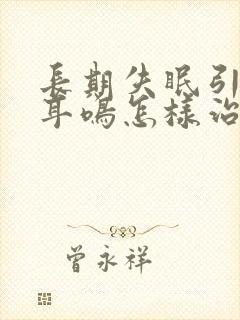 長期失眠引
耳鳴怎樣治
曾永祥